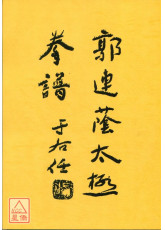 郭連蔭太極
拳譜
于右任